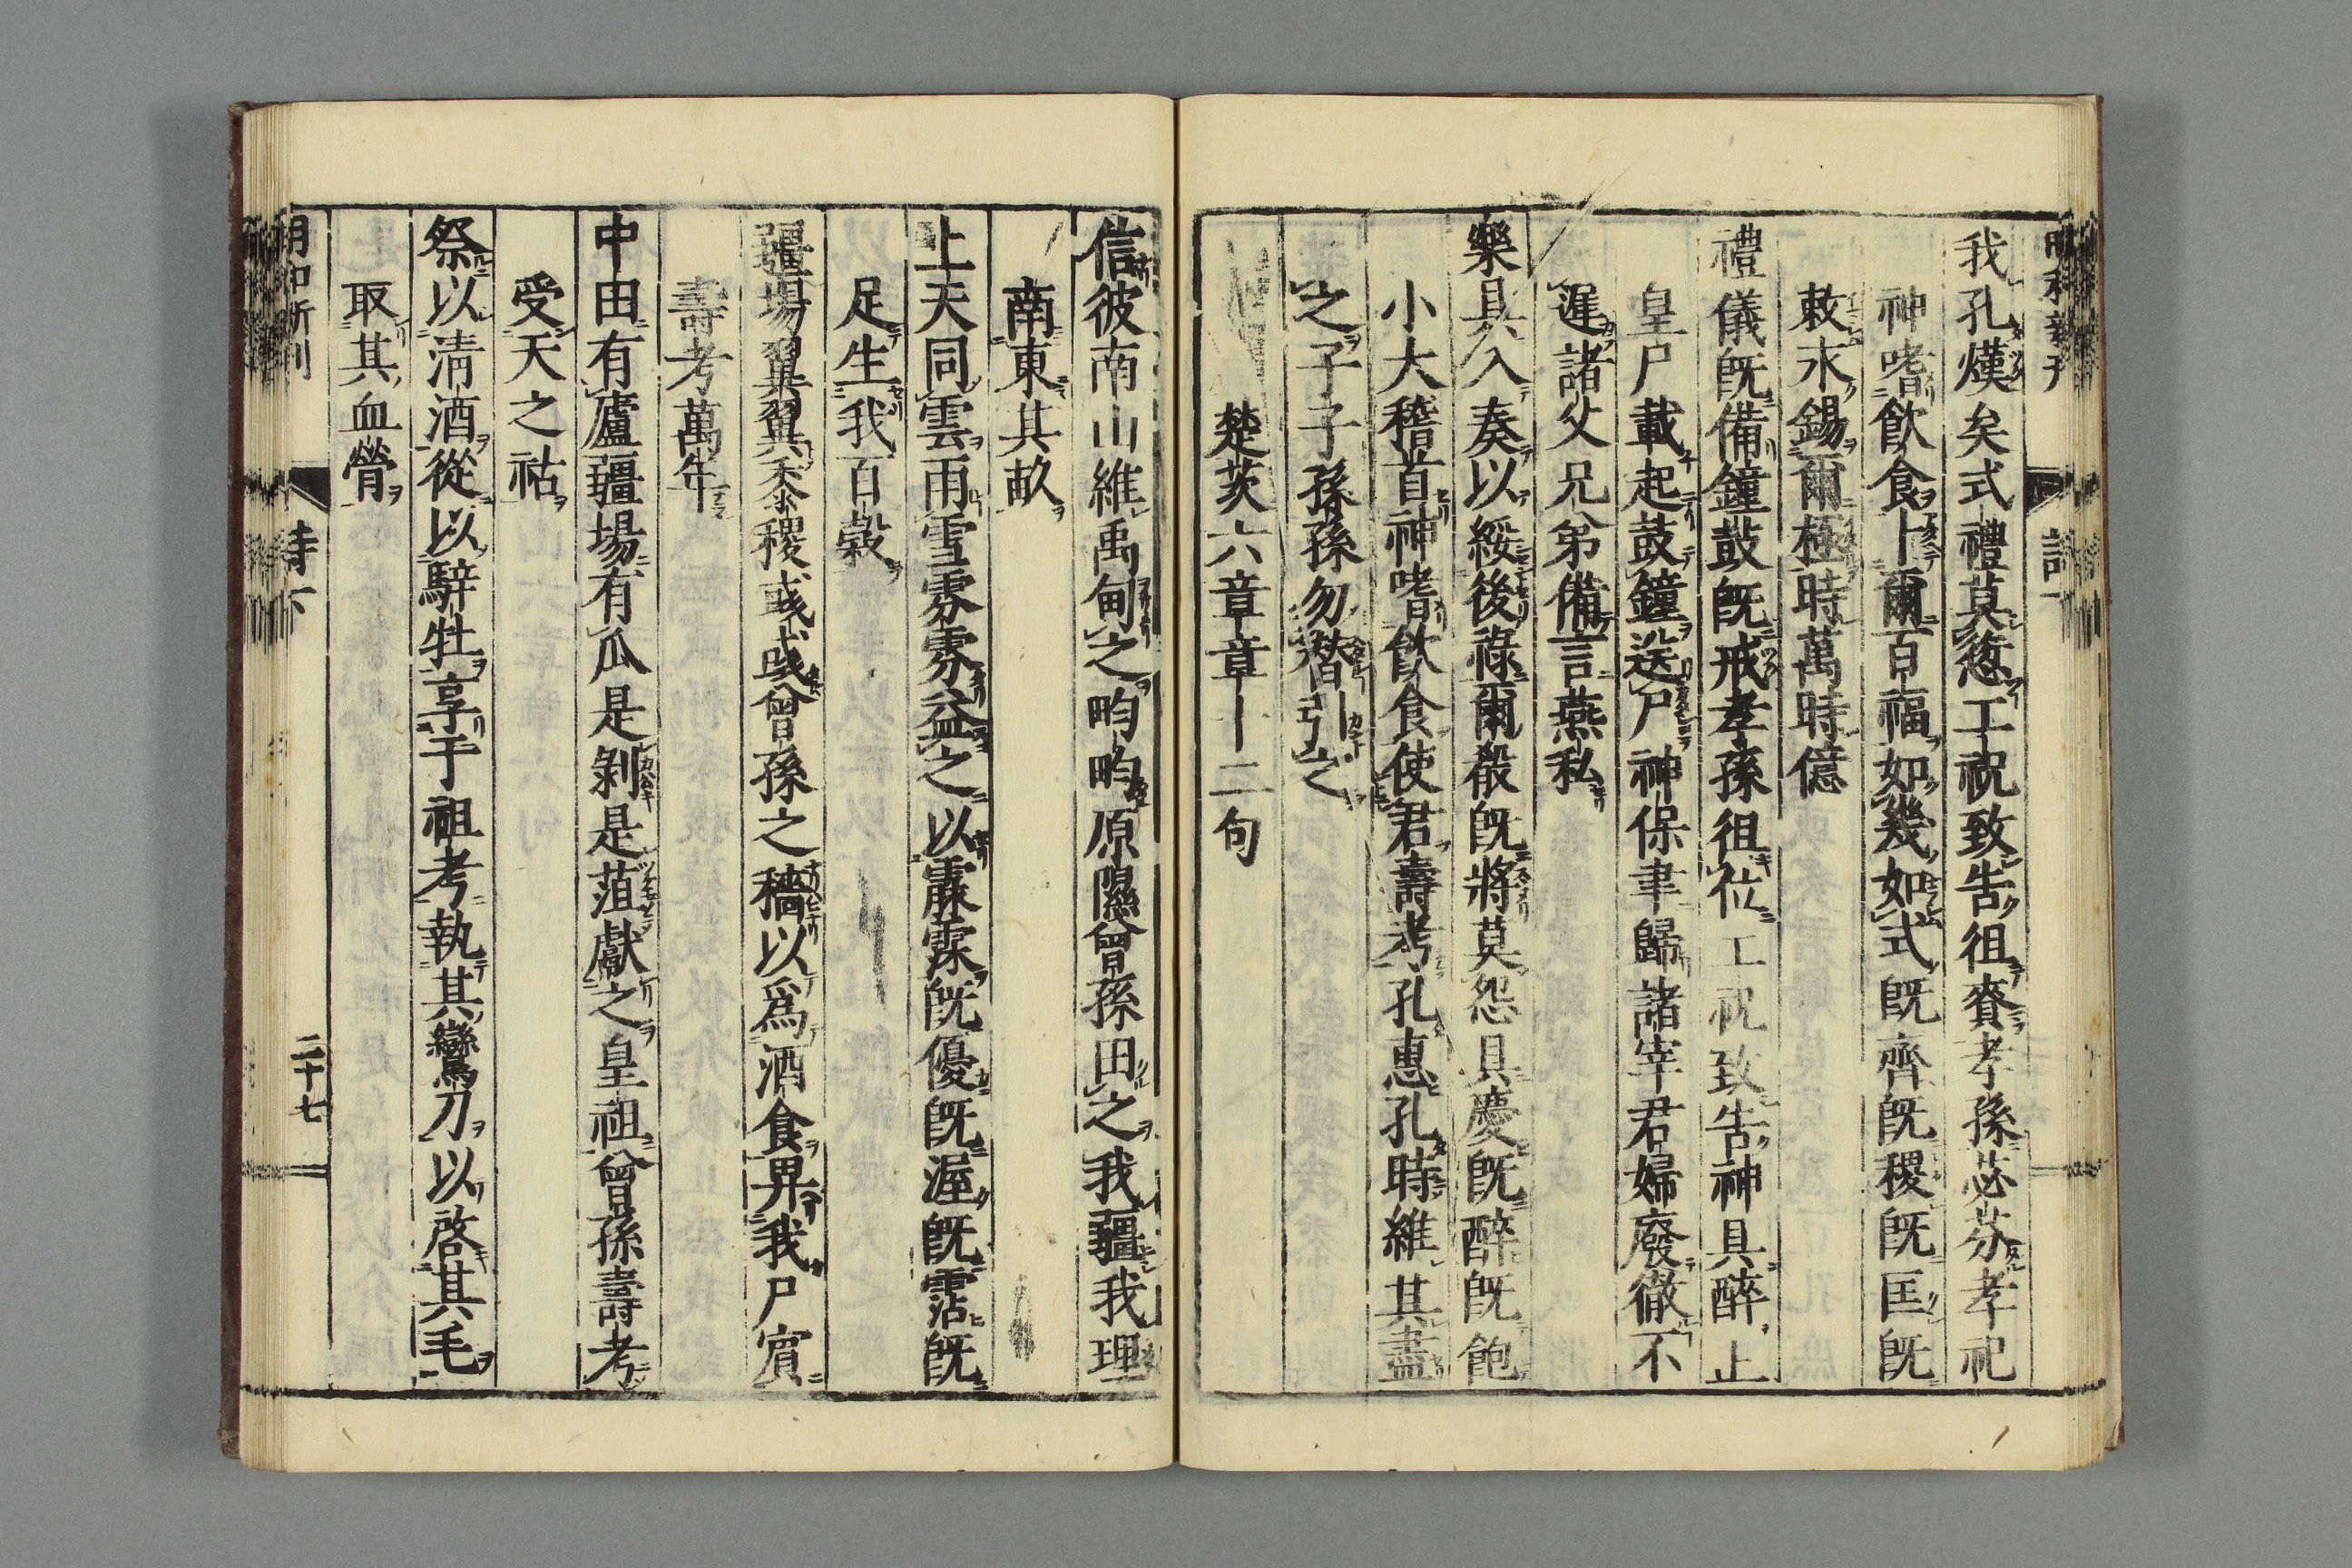 我孔熯矣式禮莫愆工祝致告徂賚孝孫苾芬孝祀
神嗜飲食卜爾百福如幾如式既齊既稷既匡既
敕永錫爾極時萬時億
禮儀既備鐘鼓既戒孝孫徂位工祝致告神具醉止
皇尸載起鼓鐘送尸神保聿歸諸宰君婦廢徹不
遲諸父兄弟備言燕私
樂具入奏以綏後祿爾殽既將莫怨具慶既醉既飽
小大稽首神嗜飲食使君壽考孔惠孔時維其盡
之子子孫孫勿替引之
楚茨六章章十二句
信彼南山維禹甸之畇畇原隰曾孫田之我疆我理
南東其畝
上天同雲雨雪雰雰益之以霡霂既優既渥既霑既
足生我百穀
疆場翼翼黍稷彧彧曾孫之穡以爲酒食畀我尸賓
壽考萬年
中田有廬疆場有瓜是剝是菹獻之皇祖曾孫壽考
受天之祜
祭以清酒從以騂牡享于祖考執其鸞刀以啓其毛
取其血膋
詩下
二十七